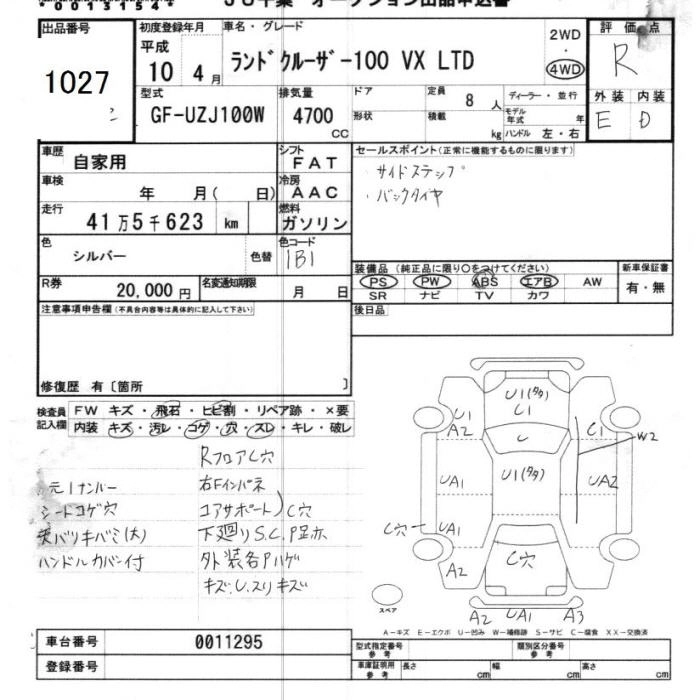 出品番号
1027
初度登録年月
平成
10 4月
車名・グレード
ランドクルーザー100 VX LTD
2WD
・
4WD
評価点
R
外装 内装
E D
型式
GF-UZJ100W
排気量
4700
CC
ドア
形状
定員
8 人
積載
kg
ディーラー・並行
モデル年式 年
ハンドル 左・右
車歴
自家用
シフト
FAT
車検
年 月( 日)
冷房
AAC
走行
41万5千623 km
燃料
ガソリン
色
シルバー
色替
色コード
1B1
R券
20,000円
名変通知期限
月 日
セールスポイント(正常に機能するものに限ります)
・サイドステップ
・バックタイヤ
装備品 (純正品に限り○をつけてください)
PS PW ABS エアB AW
SR ナビ TV カワ
新車保証書
有・無
後日品
注意事項申告欄(不具合内容等は具体的に記入して下さい)
修復歴 有〔箇所 〕
検査員記入欄
FW キズ・飛石・ヒビ割・リペア跡・×要
内装・キズ・汚レ・コゲ・穴・スレ・キレ・破レ
RフロアC穴
元1ナンバー
右Fインパネ
シートコゲ穴
コアサポート)C穴
天バリキバミ(大)
下廻りS.C.P足赤
ハンドルカバー付
外装各Pハゲ
キズ・U.スリキズ
U1(タタ)
C1
U1
A2
C1
W2
U
UA1
U1(タタ)
UA2
C穴
UA1
A2
C穴
A2 UA1 A3
スペア
A-キズ E-エクボ U-凹み W-補修跡 S-サビ C-腐食 XX-交換済
車台番号
0011295
登録番号
型式指定番号
参考
類別区分番号
参考
車庫証明用
参考
長さ cm
幅 cm
高さ cm